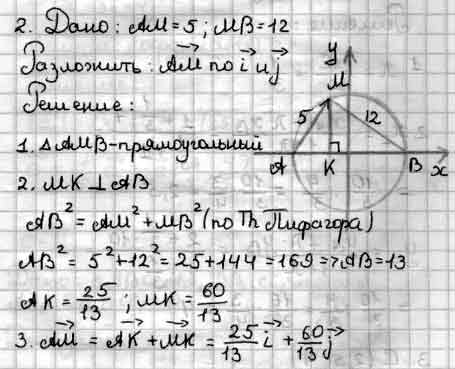 2. Дано: AM = 5; MB = 12
Разложить: AM по i и j
Решение:
1. △AMB - прямоугольный
2. MK ⊥ AB
AB² = AM² + MB² (по Th Пифагора)
AB² = 5² + 12² = 25 + 144 = 169 => AB = 13
AK = 25/13; MK = 60/13
3. AM = AK + MK = 25/13 i + 60/13 j
y
M
5
12
A
K
B
x